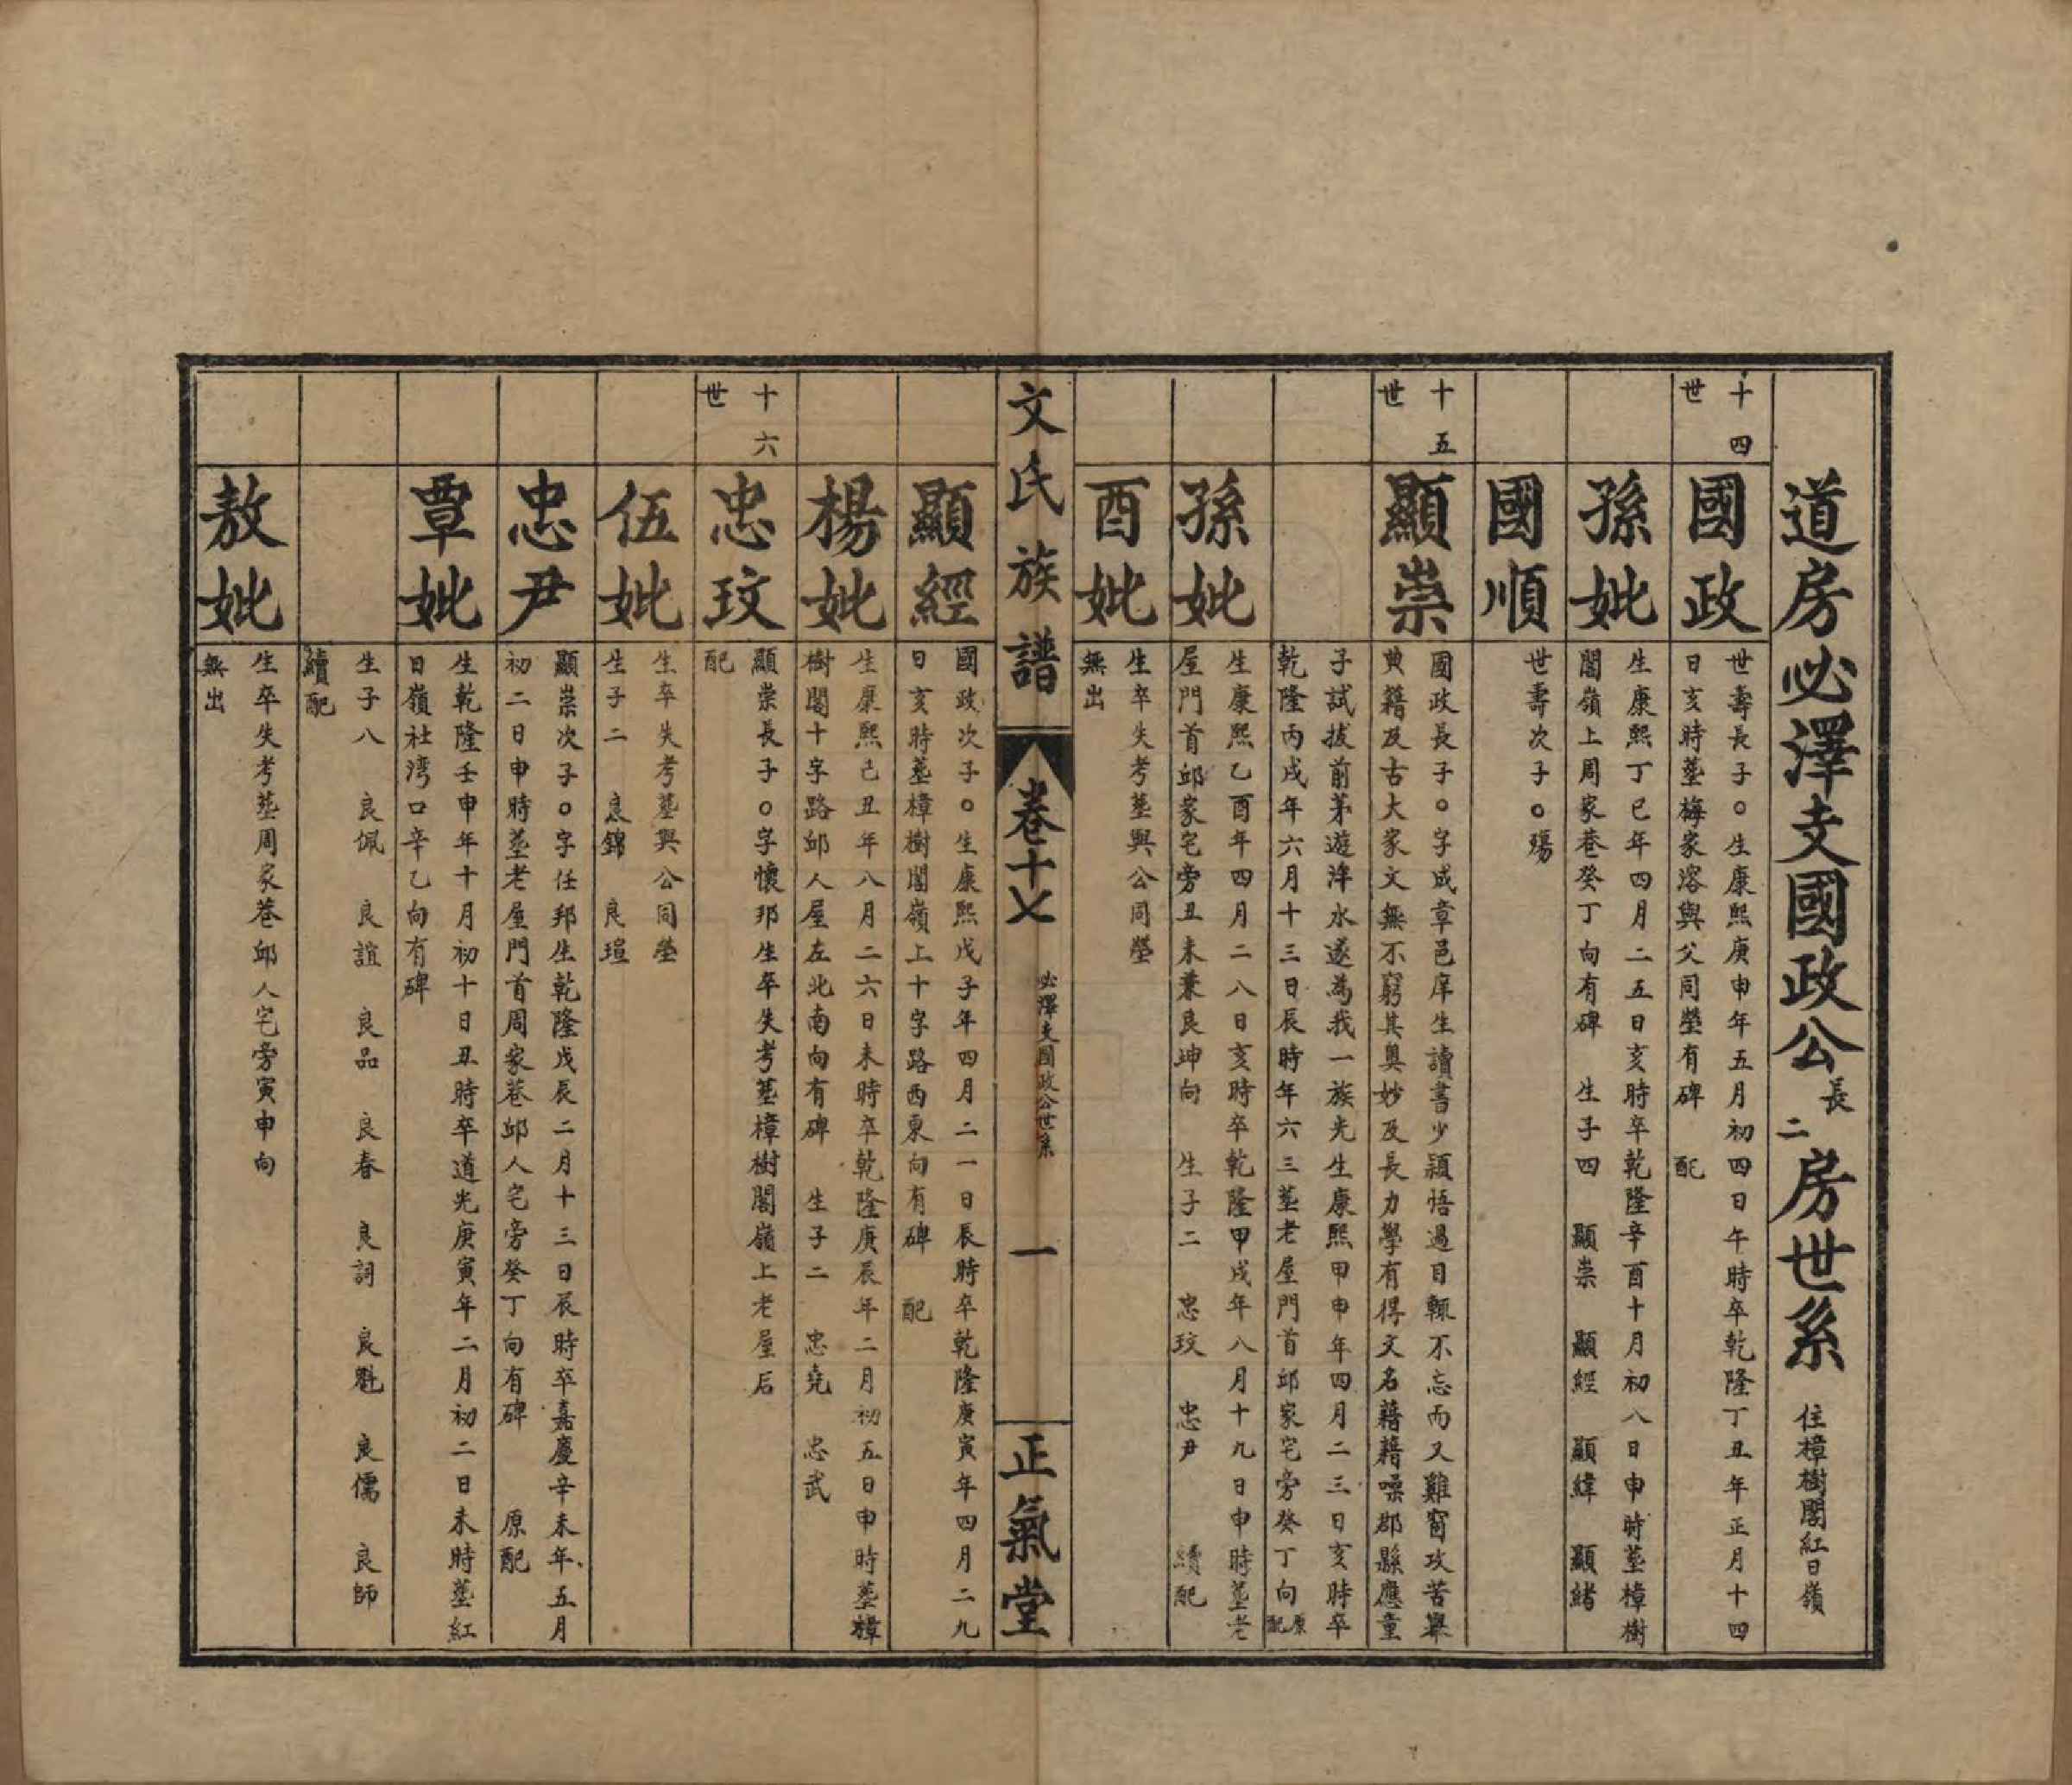 道房必澤支國政公長二房世系 住樟樹閣紅日嶺
十四世
國政
世壽長子○生康熙庚申年五月初四日午時卒乾隆丁丑年正月十四
日亥時塟梅家溶與父同塋有碑 配
孫妣
生康熙丁巳年四月二五日亥時卒乾隆辛酉十月初八日申時塟樟樹
閣嶺上周家巷癸丁向有碑 生子四 顯崇 顯經 顯緯 顯緒
國順
世壽次子○殤
十五世
顯崇
國政長子○字成章邑庠生讀書少穎悟過目輒不忘而又雞窗攻苦舉
典籍及古大家文無不窮其奥妙及長力學有得文名藉藉噪郡縣應童
子試拔前茅遊泮水遂為我一族光生康熙甲申年四月二三日亥時卒
乾隆丙戌年六月十三日辰時年六三塟老屋門首邱家宅旁癸丁向原配
孫妣
生康熙乙酉年四月二八日亥時卒乾隆甲戌年八月十九日申時塟老
屋門首邱家宅旁丑未兼艮坤向 生子二 忠玟 忠尹 續配
酉妣
生卒失考塟與公同塋
無出
文氏族譜 卷十七 必澤支國政公世系 一 正氣堂
顯經
國政次子○生康熙戊子年四月二一日辰時卒乾隆庚寅年四月二九
日亥時塟樟樹閣嶺上十字路西東向有碑 配
楊妣
生康熙己丑年八月二六日未時卒乾隆庚辰年二月初五日申時塟樟
樹閣十字路邱人屋左北南向有碑 生子二 忠堯 忠武
十六世
忠玟
顯崇長子○字懷邦生卒失考塟樟樹閣嶺上老屋后
配
伍妣
生卒失考塟與公同塋
生子二 良錦 良瑄
忠尹
顯崇次子○字任邦生乾隆戊辰二月十三日辰時卒嘉慶辛未年五月
初二日申時塟老屋門首周家巷邱人宅旁癸丁向有碑 原配
覃妣
生乾隆壬申年十月初十日丑時卒道光庚寅年二月初二日未時塟紅
日嶺社湾口辛乙向有碑
生子八 良佩 良誼 良品 良春 良詞 良魁 良儒 良師
續配
敖妣
生卒失考塟周家巷邱人宅旁寅申向
無出